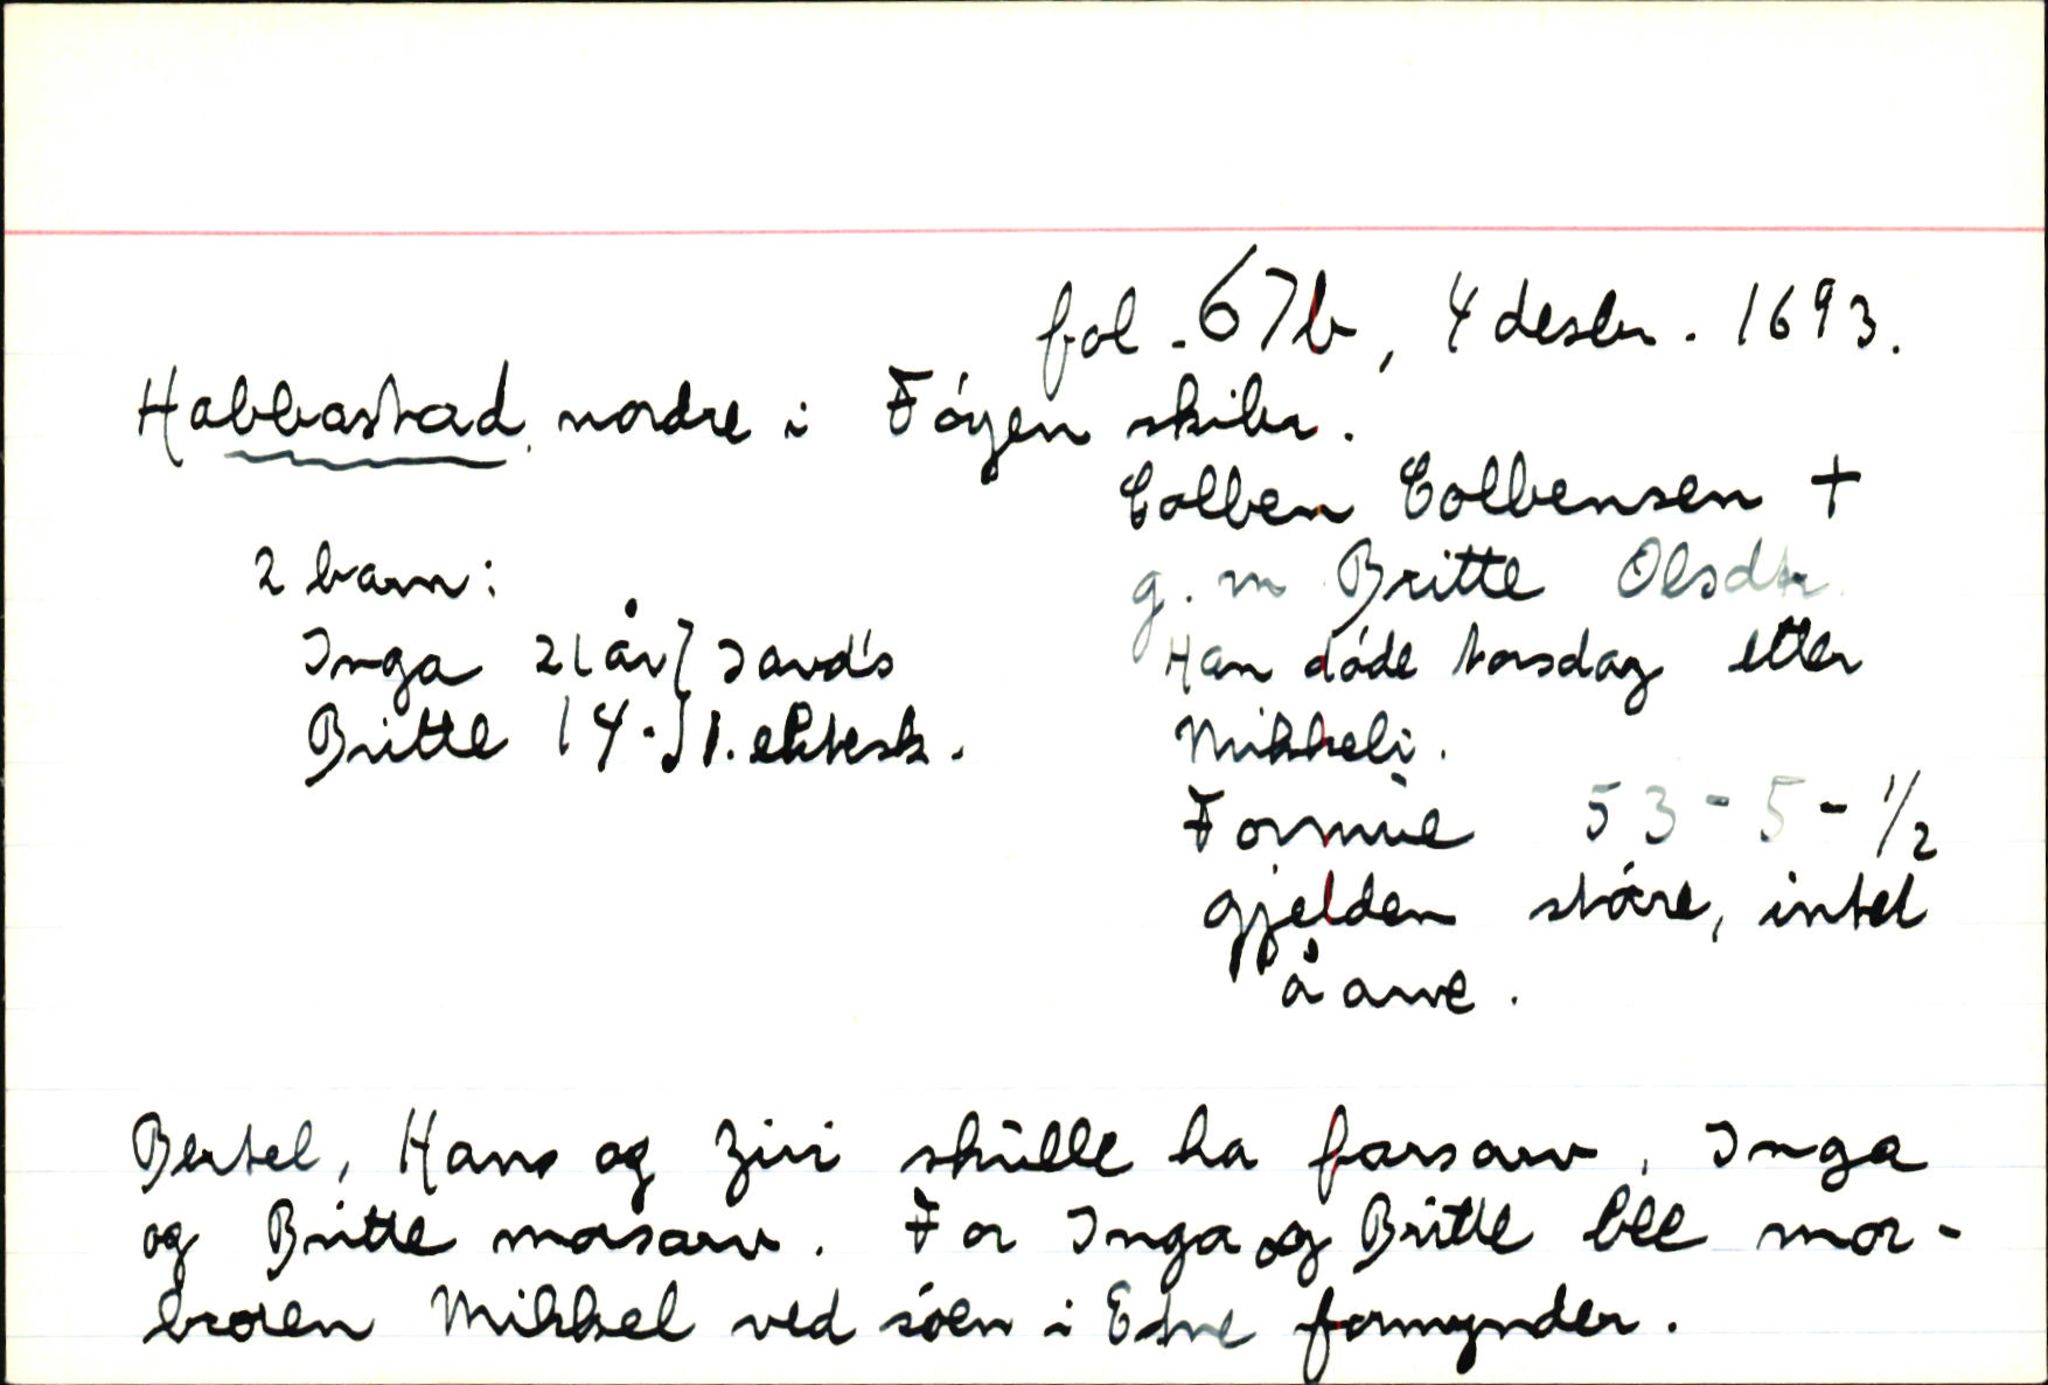 fol. 67b, 4 desbr. 1693.
Habbastad nordre i Føyen skibr.
Colben Colbensen +
g. m Britte Olsdtr.
Han døde torsdag etter
Mikkeli.
Formue 53-5-1/2
gjelden større, intet
å arve.
2 barn:
Inga 21 år } I avd's
Britte 14 - } 1. ektesk.
Bertel, Hans og Ziri skulle ha farsarv, Inga
og Britte morsarv. For Inga og Britte ble mor-
broren Mikkel ved søen i Edne formynder.